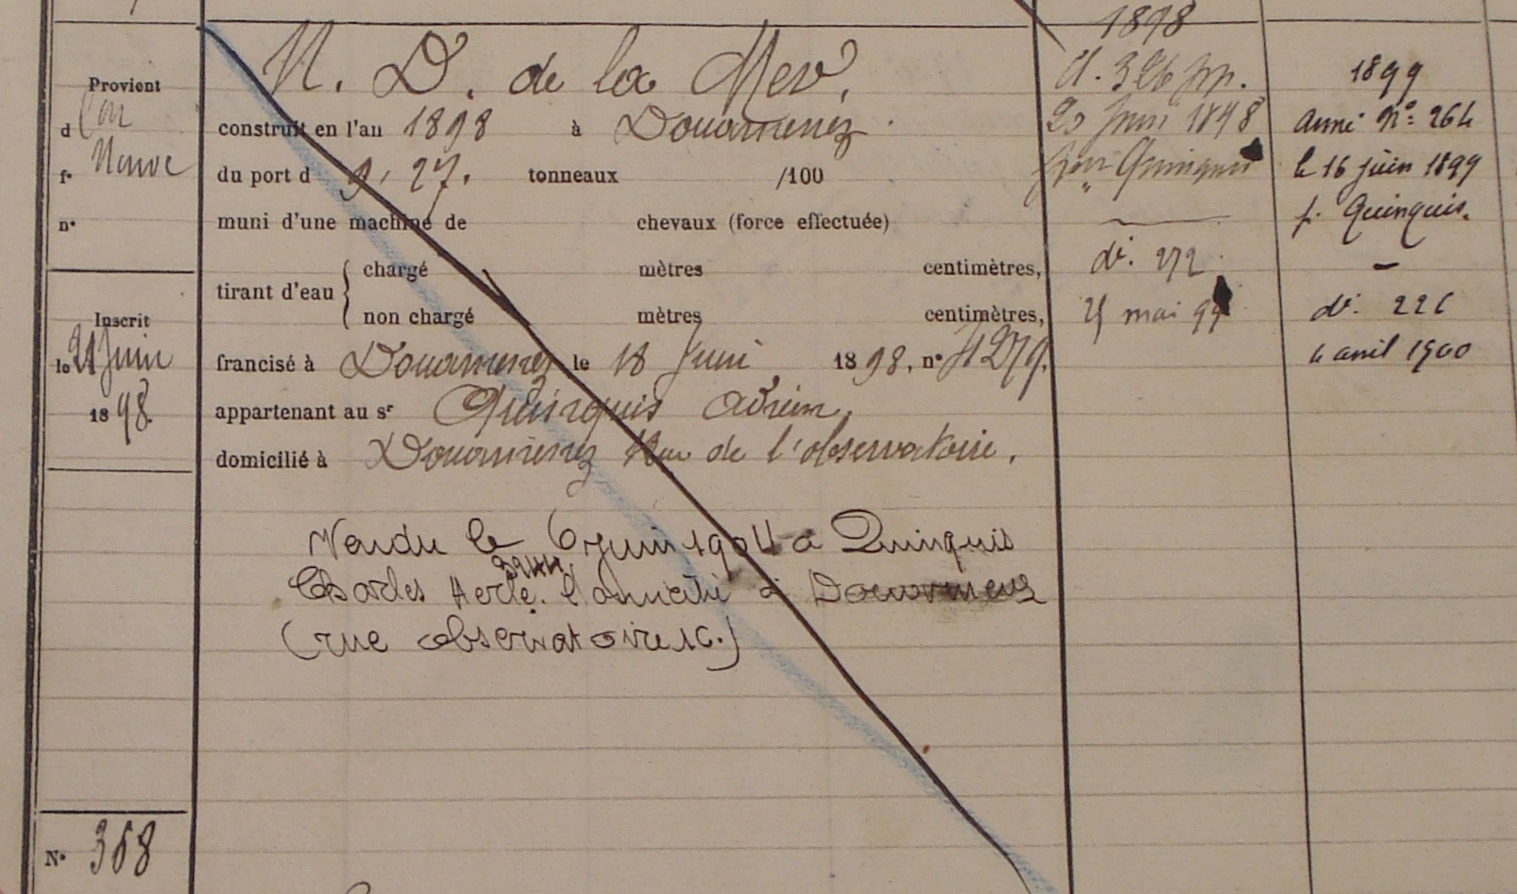 Provient
d Con
fᵉ Neuve
nº
Inscrit
le 21 Juin
1898.
Nº 368
N. D. de la Mer.
construit en l'an 1898 à Douarnenez
du port d 9, 27. tonneaux /100
muni d'une machine de chevaux (force effectuée)
tirant d'eau { chargé mètres centimètres,
non chargé mètres centimètres,
francisé à Douarnenez le 18 Juin 1898, nº 1279.
appartenant au sʳ Quinquis Adrien,
domicilié à Douarnenez Rue de l'observatoire.
Vendu le 6 juin 1904 a Quinquis
Charles Domicilié a Douarnenez
(rue observatoire 10.)
1898
A. 326
20 Juin 1898
par Quinquis
dé. 272
25 mai 99
1899
armé Nº 264
le 16 juin 1899
p. Quinquis.
dé. 226
4 avril 1900